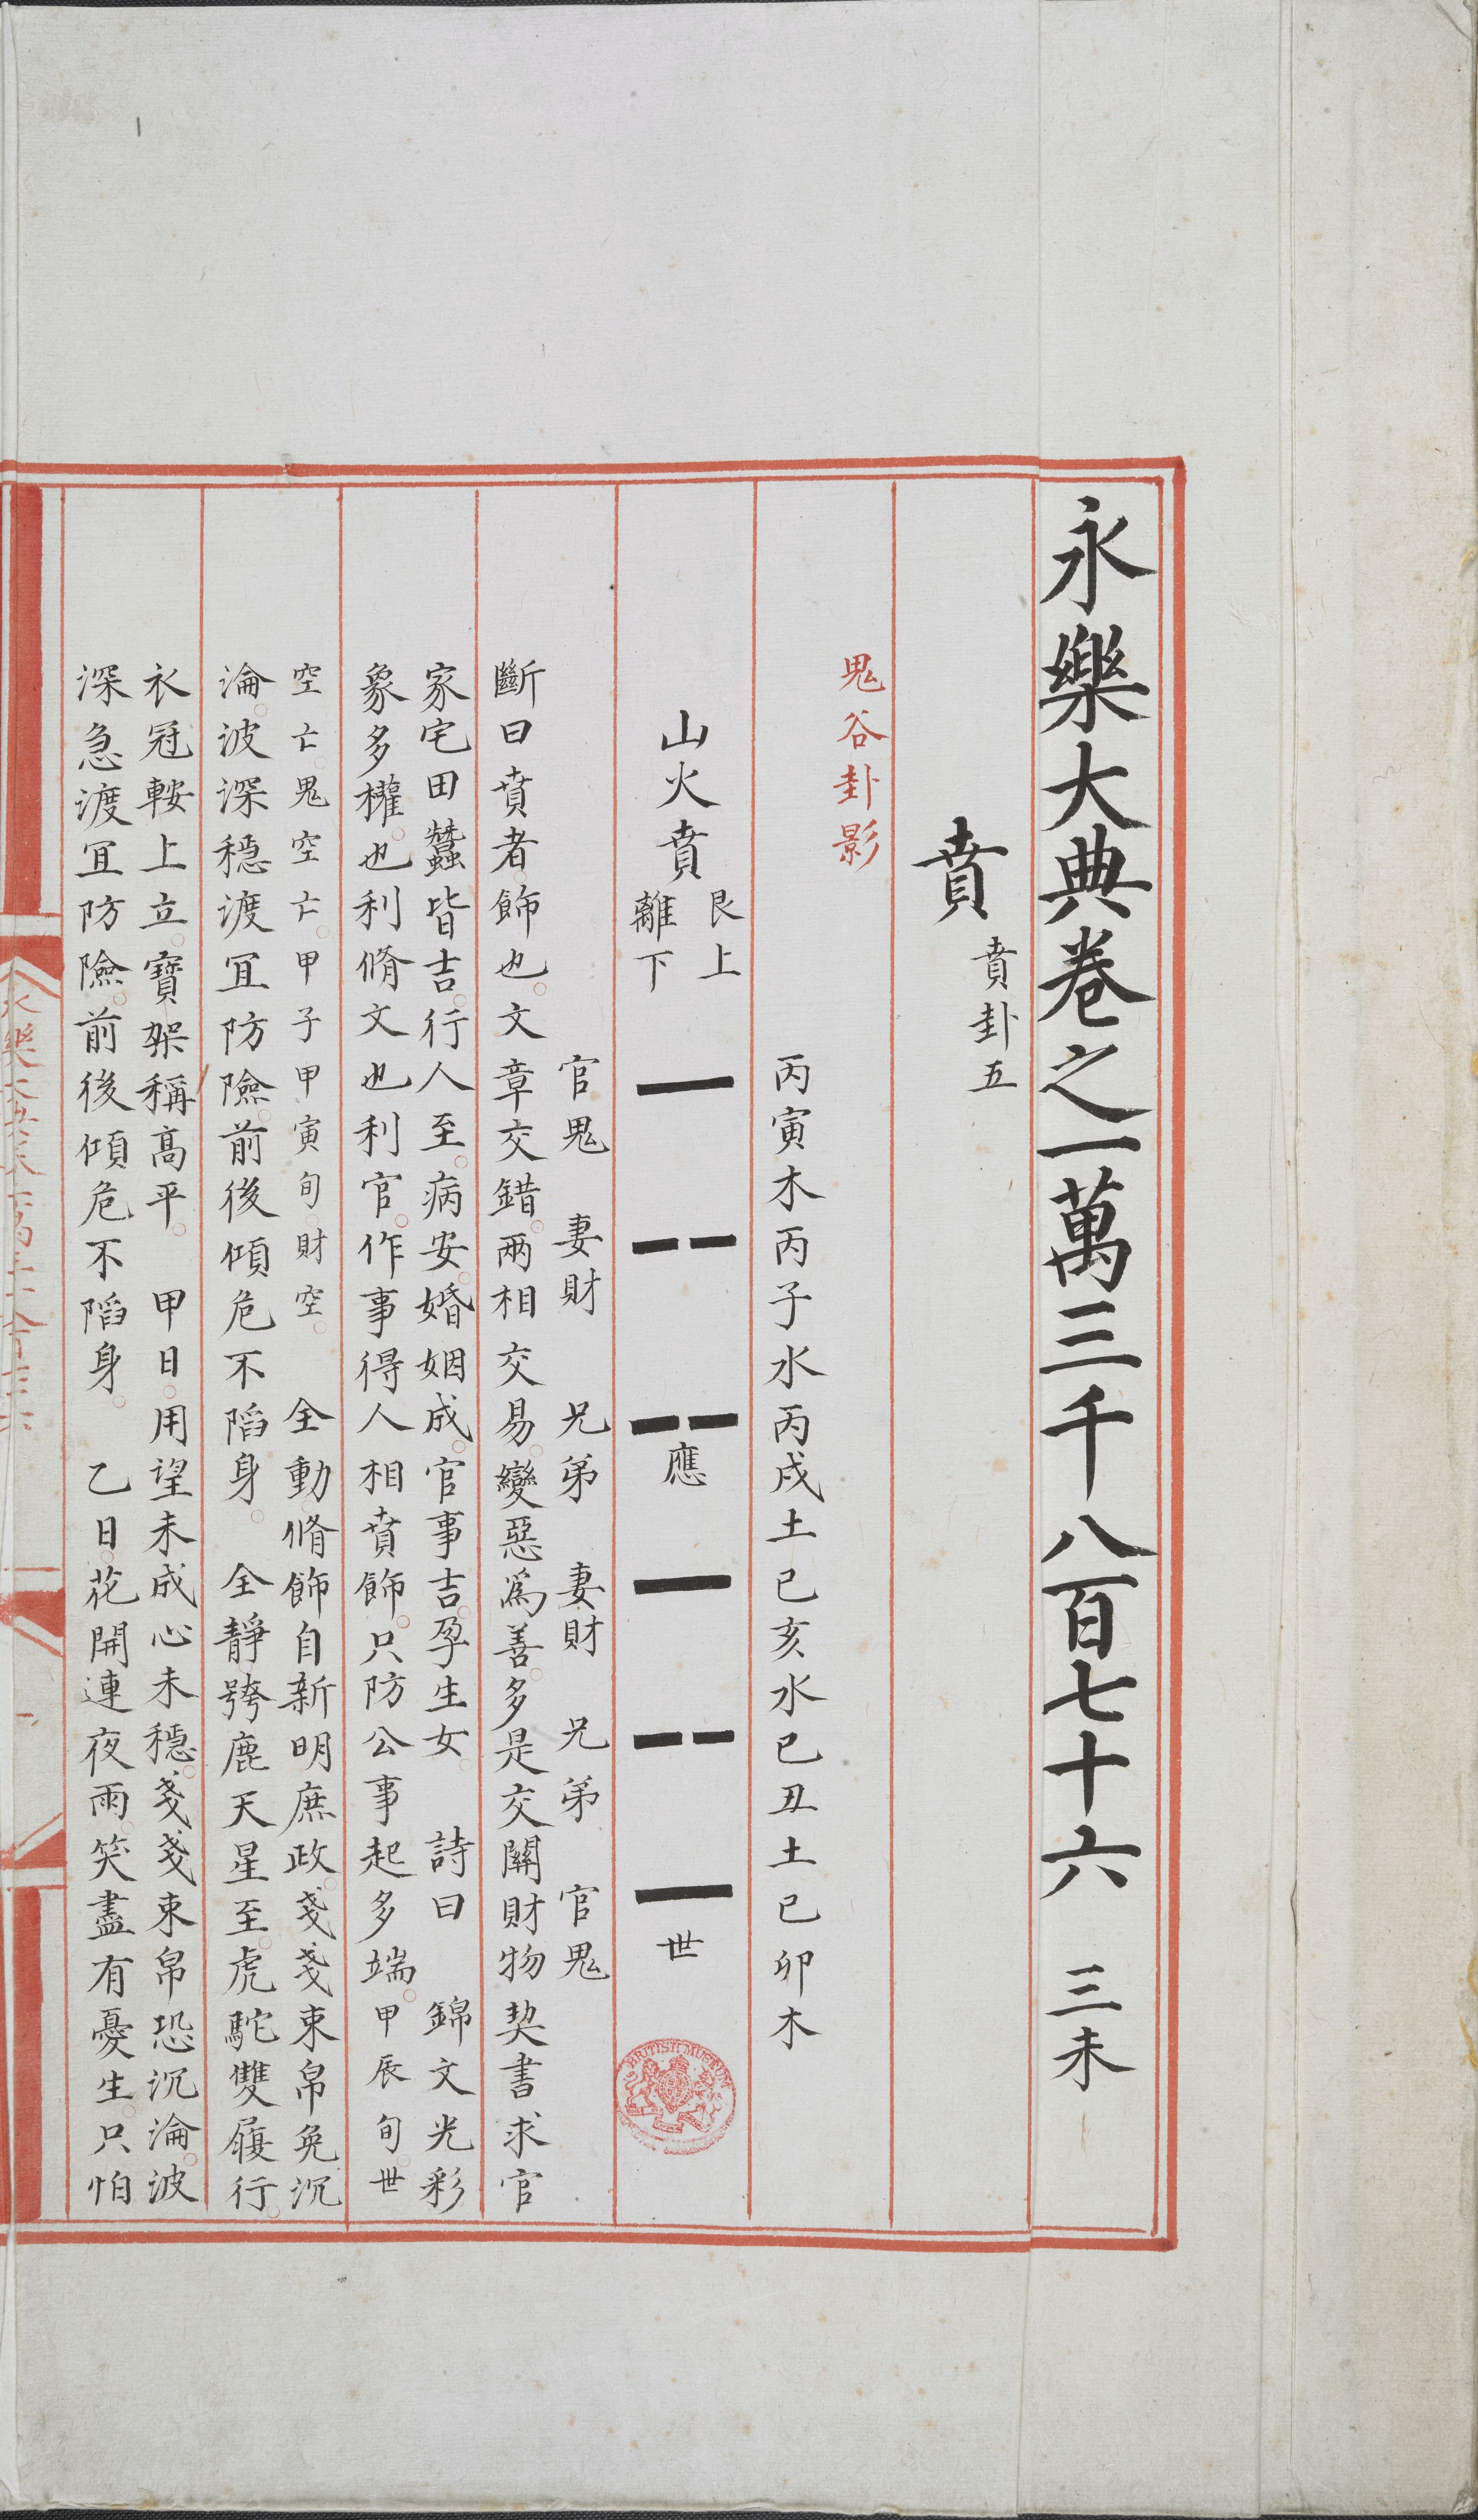 永樂大典卷之一萬三千八百七十六 三未
賁 賁卦五
鬼谷卦影
丙寅木丙子水丙戌土己亥水己丑土己卯木
山火賁 艮上
離下
應
世
官鬼 妻財 兄弟 妻財 兄弟 官鬼
斷曰賁者飾也文章交錯兩相交易變惡爲善多是交關財物契書求官
家宅田蠶皆吉行人至病安婚姻成官事吉孕生女 詩曰 錦文光彩
象多權也利脩文也利官作事得人相賁飾只防公事起多端甲辰旬世
空亡鬼空亡甲子甲寅旬財空 全動脩飾自新明庶政戔戔束帛免沉
淪波深穩渡宜防險前後傾危不陷身 全靜跨鹿天星至虎駝雙履行
衣冠鞍上立寶架稱高平 甲日用望未成心未穩戔戔束帛恐沉淪波
深急渡宜防險前後傾危不陷身 乙日花開連夜雨笑盡有憂生只怕
BRITISH MUSEUM